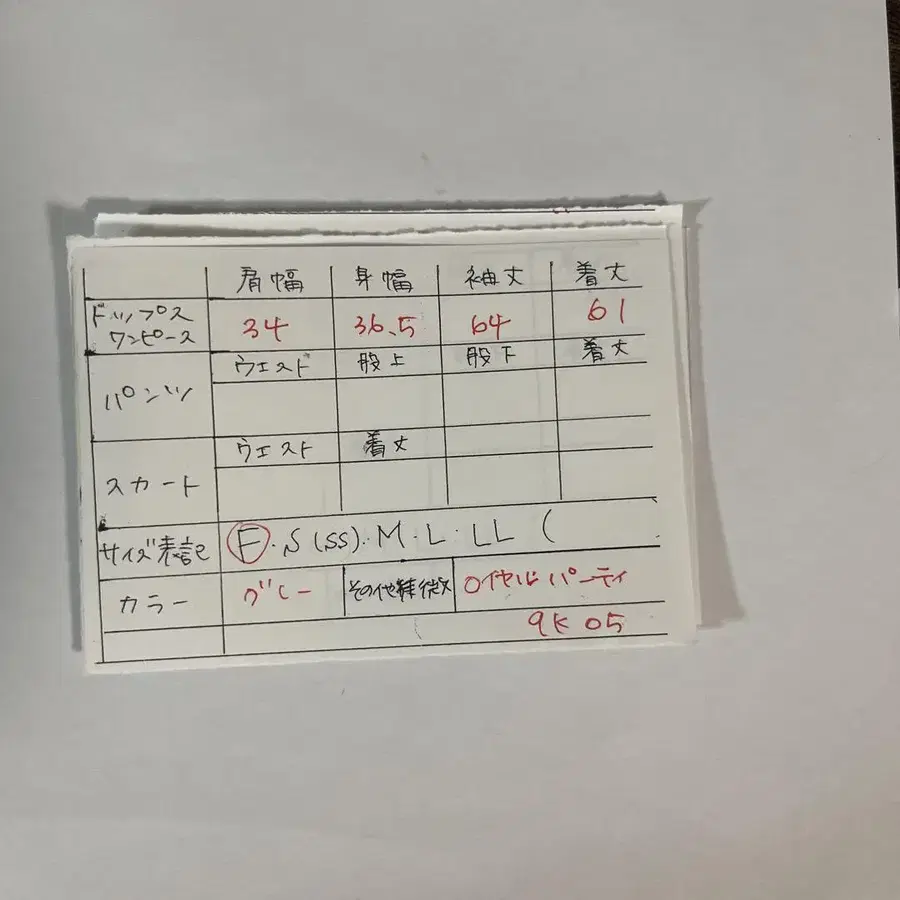 肩幅 身幅 袖丈 着丈
トップス
ワンピース
34 36.5 64 61
ウエスト 股上 股下 着丈
パンツ
ウエスト 着丈
スカート
サイズ表記 F・S(SS)・M・L・LL (
カラー グレー その他特徴 ロイヤルパーティ
9K05